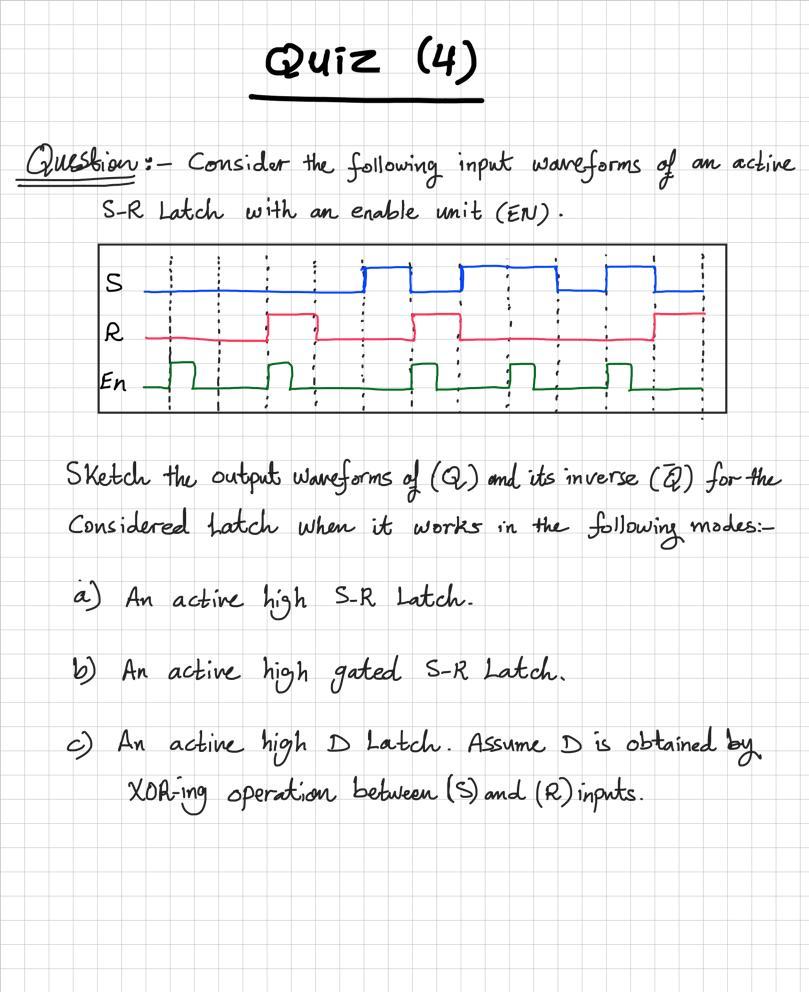 Quiz (4)
Question:- Consider the following input waveforms of an active
S-R Latch with an enable unit (EN).
S
R
En
Sketch the output waveforms of (Q) and its inverse (Q̄) for the
Considered Latch when it works in the following modes:-
a) An active high S-R Latch.
b) An active high gated S-R Latch.
c) An active high D Latch. Assume D is obtained by
XOR-ing operation between (S) and (R) inputs.